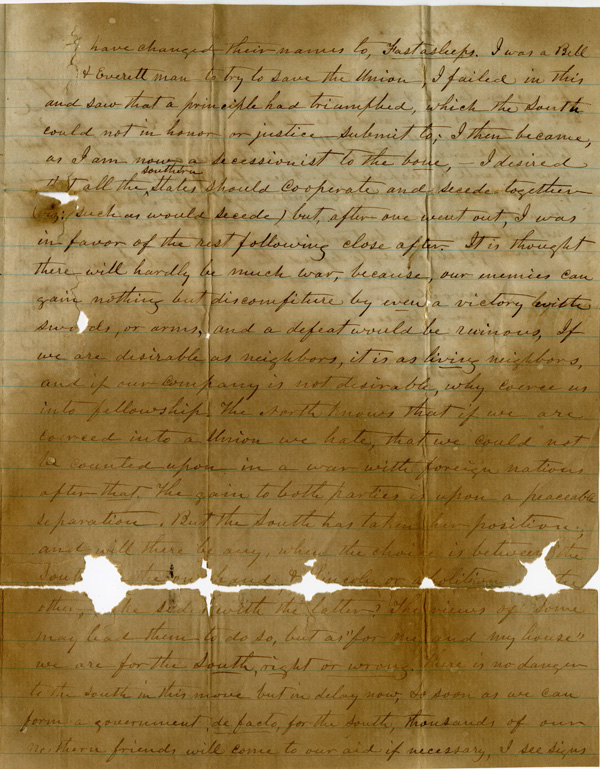 have changed their names to, Fastasleeps. I was a Bell
& Everett man to try to save the Union, I failed in this
and saw that a principle had triumphed, which the South
could not in honor or justice submit to; I then became,
as I am now, a secessionist to the bone, — I desired
southern
that all the States should cooperate and secede together
(viz: such as would secede) but, after one went out, I was
in favor of the rest following close after. It is thought
there will hardly be much war, because, our enemies can
gain nothing but discomfiture by even a victory with
swords, or arms, and a defeat would be ruinous, If
we are desirable as neighbors, it is as living neighbors,
and if our company is not desirable, why coerce us
into fellowship. The North knows that if we are
coerced into a Union we hate, that we could not
be counted upon in a war with foreign nations
after that. The gain to both parties is upon a peaceable
separation. But the South has taken her position,
and will there be any, when the choice is between the
on hand & Lincoln or abolition
other, side with the latter? The views of some
may lead them to do so, but as "for me and my house"
we are for the South, right or wrong. There is no danger
to the South in this move but in delay now, & soon as we can
form a government, de facto, for the South, thousands of our
northern friends will come to our aid if necessary, I see signs